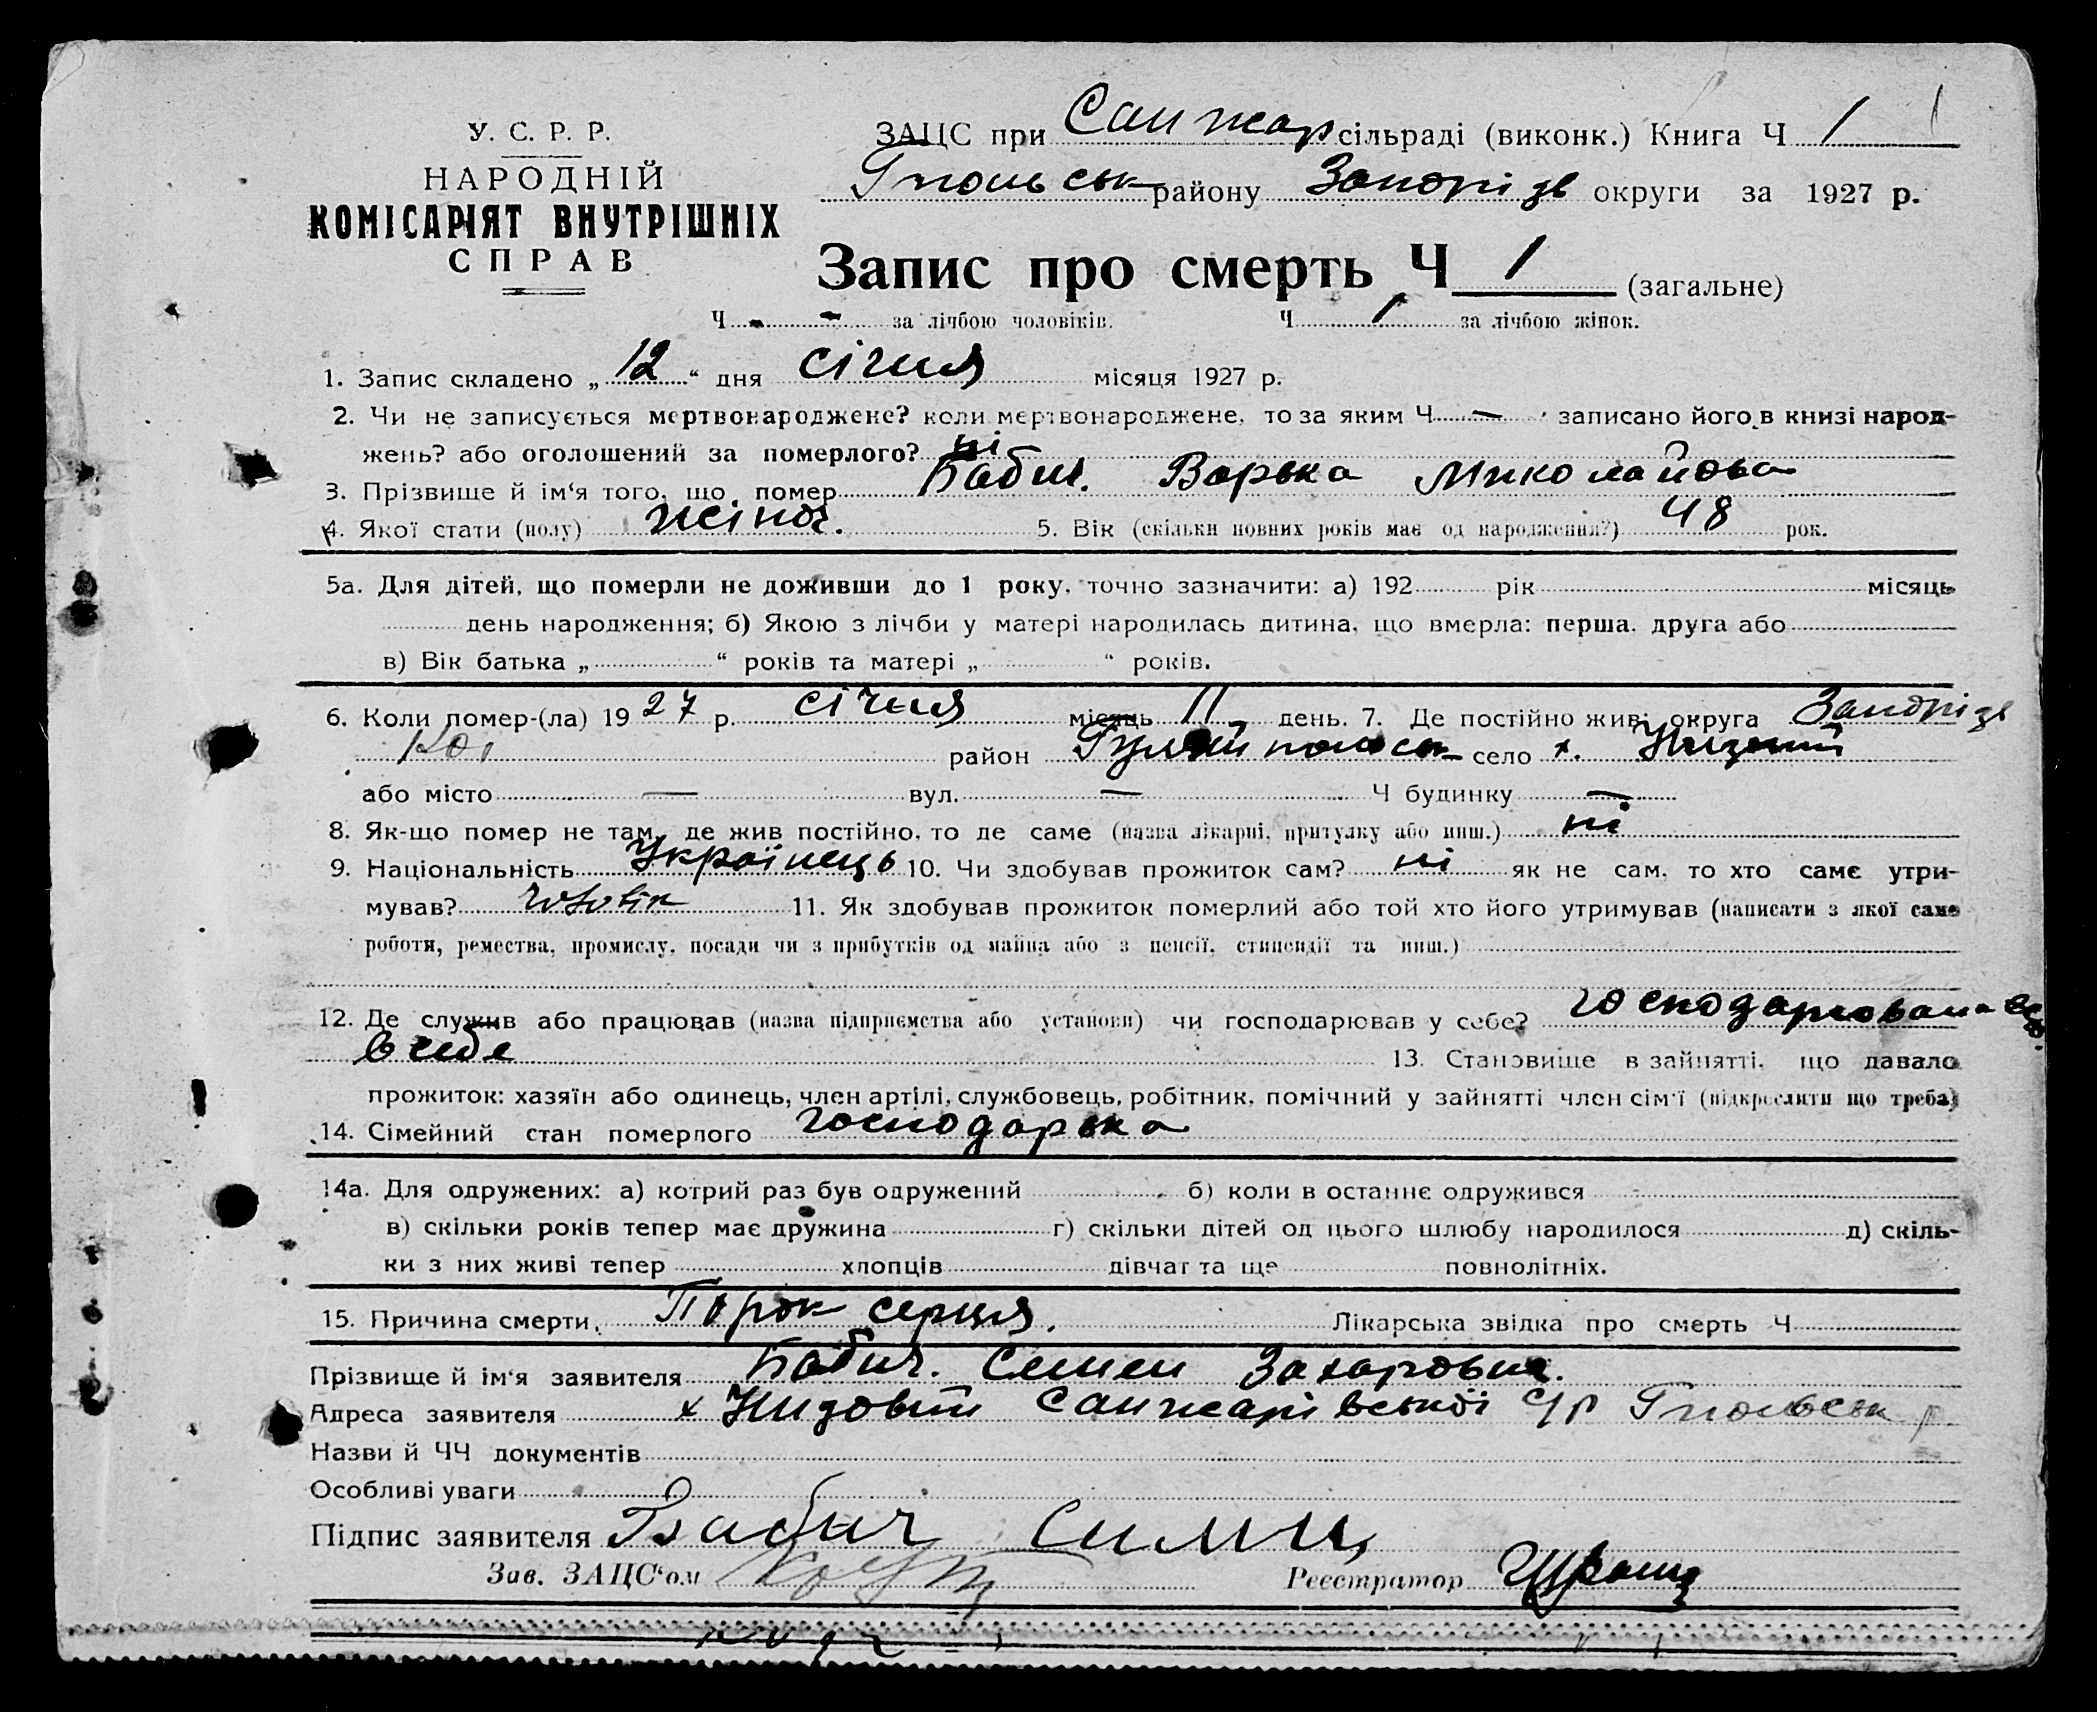 У. С. Р. Р.
НАРОДНІЙ
КОМІСАРІЯТ ВНУТРІШНІХ
СПРАВ
ЗАЦС при Санжар сільраді (виконк.) Книга Ч 1
Гпольськ району Запоріз округи за 1927 р.
Запис про смерть Ч 1 (загальне)
Ч - за лічбою чоловіків. Ч 1 за лічбою жінок.
1. Запис складено „ 12 “ дня січня місяця 1927 р.
2. Чи не записується мертвонароджене? коли мертвонароджене, то за яким Ч — записано його в книзі народ-
жень? або оголошений за померлого? ні
3. Прізвище й ім‘я того, що помер Бабич. Варька Миколайовна
4. Якої стати (полу) жіноч. 5. Вік (скільки повних років має од народження?) 48 рок.
5а. Для дітей, що померли не доживши до 1 року, точно зазначити: а) 192 рік місяць
день народження; б) Якою з лічби у матері народилась дитина, що вмерла: перша, друга або
в) Вік батька „ “ років та матері „ “ років.
6. Коли помер-(ла) 19 27 р. січня місяць 11 день. 7. Де постійно жив: округа Запоріз
район Гуляйпольськ село х.
або місто — вул. — Ч будинку —
8. Як-що помер не там, де жив постійно, то де саме (назва лікарні, притулку або инш.) ні
9. Національність Українець 10. Чи здобував прожиток сам? ні як не сам, то хто саме утри-
мував? чоловік 11. Як здобував прожиток померлий або той хто його утримував (написати з якої саме
роботи, ремества, промислу, посади чи з прибутків од майна або з пенсії, стипендії та инш.)
12. Де служив або працював (назва підприємства або установи) чи господарював у себе? господарювала
в себе 13. Становище в зайнятті, що давало
прожиток: хазяїн або одинець, член артілі, службовець, робітник, помічний у зайнятті член сім‘ї (підкреслити що треба)
14. Сімейний стан померлого господарька
14а. Для одружених: а) котрий раз був одружений б) коли в останнє одружився
в) скільки років тепер має дружина г) скільки дітей од цього шлюбу народилося д) скіль-
ки з них живі тепер хлопців дівчат та ще повнолітніх.
15. Причина смерти. Порок серця. Лікарська звідка про смерть Ч
Прізвище й ім‘я заявителя Бабич. Семен Захарович.
Адреса заявителя х Санжарівської с/р Гпольськ р
Назви й ЧЧ документів
Особливі уваги
Підпис заявителя Бабич
Зав. ЗАЦС‘ом
Реєстратор